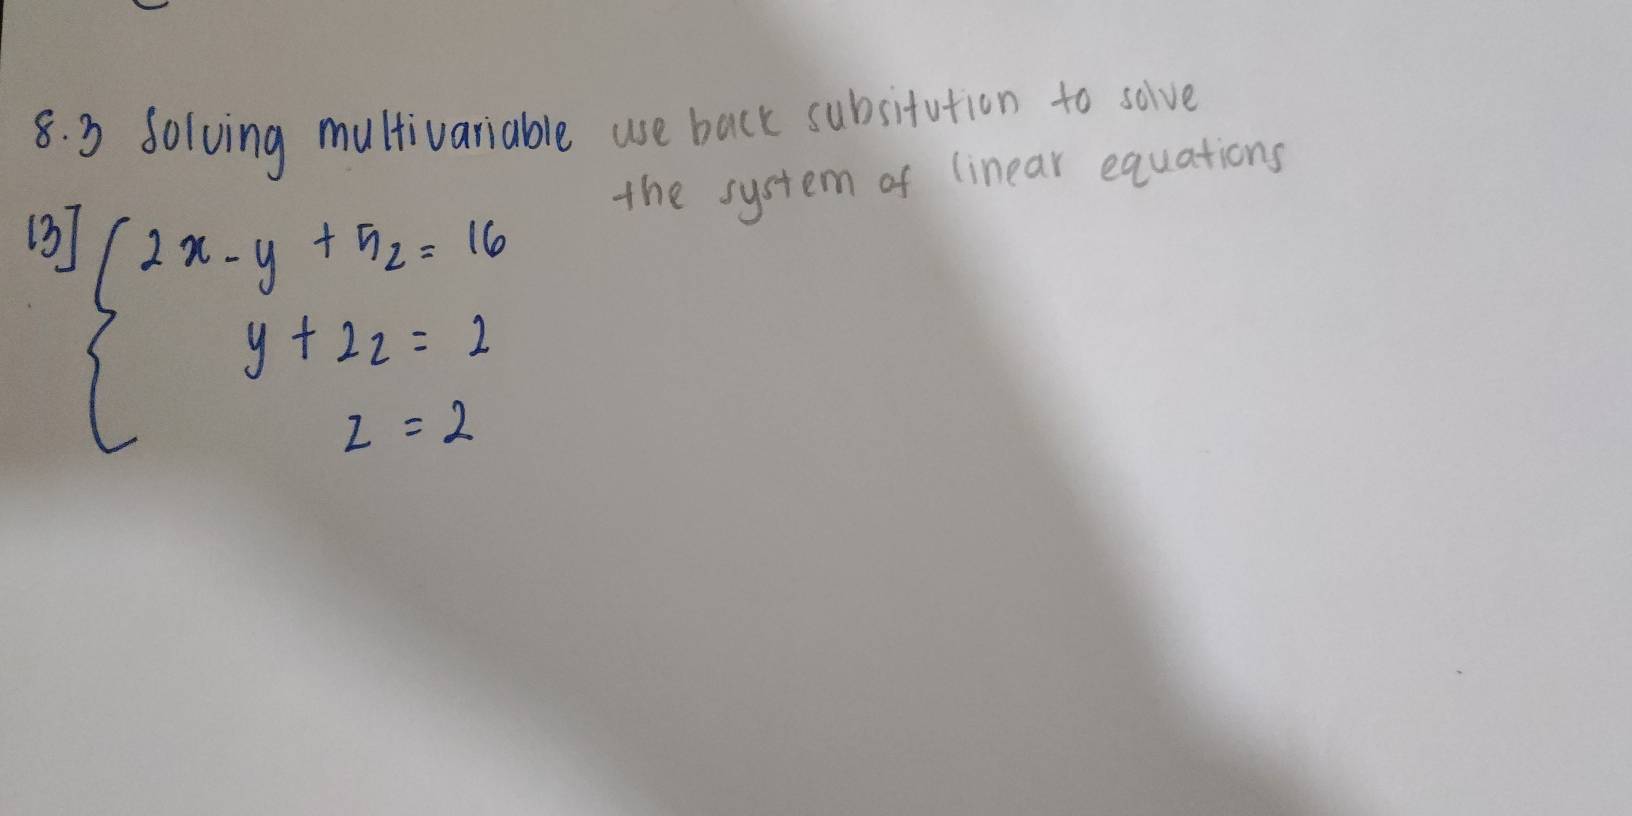 8.3 Solving multivariable use back subsitution to solve
the system of linear equations
13] { 2x - y + 5z = 16
y + 2z = 2
z = 2